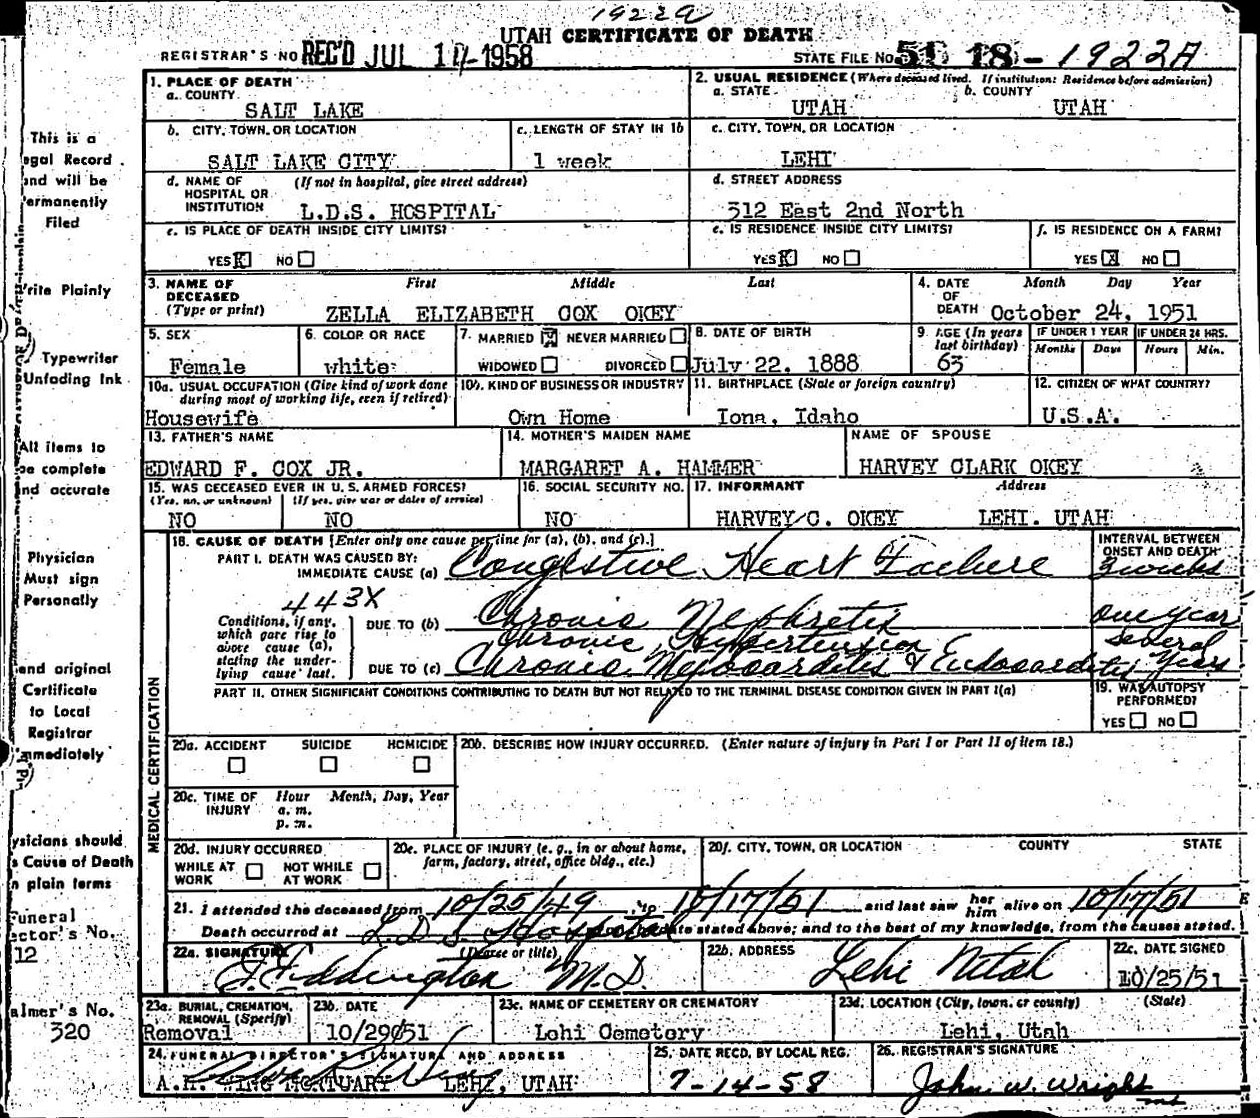 1922A
UTAH CERTIFICATE OF DEATH
REGISTRAR'S NO. REC'D JUL 14 1958
STATE FILE No. 51 18 - 1922A
1. PLACE OF DEATH
a. COUNTY
SALT LAKE
2. USUAL RESIDENCE (Where deceased lived. If institution: Residence before admission)
a. STATE b. COUNTY
UTAH UTAH
b. CITY, TOWN, OR LOCATION c. LENGTH OF STAY IN 1b
SALT LAKE CITY 1 week
c. CITY, TOWN, OR LOCATION
LEHI
d. NAME OF HOSPITAL OR INSTITUTION (If not in hospital, give street address)
L.D.S. HOSPITAL
d. STREET ADDRESS
512 East 2nd North
e. IS PLACE OF DEATH INSIDE CITY LIMITS?
YES X NO
e. IS RESIDENCE INSIDE CITY LIMITS? f. IS RESIDENCE ON A FARM?
YES X NO YES X NO
3. NAME OF DECEASED (Type or print) First Middle Last
ZELLA ELIZABETH COX OKEY
4. DATE OF DEATH Month Day Year
October 24, 1951
5. SEX
Female
6. COLOR OR RACE
white
7. MARRIED X NEVER MARRIED
WIDOWED DIVORCED
8. DATE OF BIRTH
July 22, 1888
9. AGE (In years last birthday)
63
IF UNDER 1 YEAR IF UNDER 24 HRS.
Months Days Hours Min.
10a. USUAL OCCUPATION (Give kind of work done during most of working life, even if retired)
Housewife
10b. KIND OF BUSINESS OR INDUSTRY
Own Home
11. BIRTHPLACE (State or foreign country)
Iona, Idaho
12. CITIZEN OF WHAT COUNTRY?
U.S.A.
13. FATHER'S NAME
EDWARD F. COX JR.
14. MOTHER'S MAIDEN NAME
MARGARET A. HAMMER
NAME OF SPOUSE
HARVEY CLARK OKEY
15. WAS DECEASED EVER IN U. S. ARMED FORCES?
(Yes, no, or unknown) (If yes, give war or dates of service)
NO NO
16. SOCIAL SECURITY NO.
NO
17. INFORMANT Address
HARVEY C. OKEY LEHI, UTAH
18. CAUSE OF DEATH [Enter only one cause per line for (a), (b), and (c).]
PART I. DEATH WAS CAUSED BY:
IMMEDIATE CAUSE (a) Congestive Heart Failure
INTERVAL BETWEEN ONSET AND DEATH
3 weeks
443X
Conditions, if any, which gave rise to above cause (a), stating the underlying cause last.
DUE TO (b) Chronic Nephretis One year
Chronic Hypertension Several
DUE TO (c) Chronic Myocarditis & Endocarditis Years
PART II. OTHER SIGNIFICANT CONDITIONS CONTRIBUTING TO DEATH BUT NOT RELATED TO THE TERMINAL DISEASE CONDITION GIVEN IN PART I(a)
19. WAS AUTOPSY PERFORMED?
YES NO
MEDICAL CERTIFICATION
20a. ACCIDENT SUICIDE HOMICIDE
20b. DESCRIBE HOW INJURY OCCURRED. (Enter nature of injury in Part I or Part II of item 18.)
20c. TIME OF INJURY Hour Month, Day, Year
a. m.
p. m.
20d. INJURY OCCURRED
WHILE AT WORK NOT WHILE AT WORK
20e. PLACE OF INJURY (e. g., in or about home, farm, factory, street, office bldg., etc.)
20f. CITY, TOWN, OR LOCATION COUNTY STATE
21. I attended the deceased from 10/25/49, to 10/17/51 and last saw her him alive on 10/17/51
Death occurred at L.D.S. Hospital date stated above; and to the best of my knowledge, from the causes stated.
22a. SIGNATURE (Degree or title)
Eddington M.D.
22b. ADDRESS
Lehi Utah
22c. DATE SIGNED
10/25/51
23a. BURIAL, CREMATION, REMOVAL (Specify)
Removal
23b. DATE
10/29/51
23c. NAME OF CEMETERY OR CREMATORY
Lehi Cemetery
23d. LOCATION (City, town, or county) (State)
Lehi, Utah
24. FUNERAL DIRECTOR'S SIGNATURE AND ADDRESS
A.H. WING MORTUARY LEHI, UTAH
25. DATE RECD. BY LOCAL REG.
7-14-58
26. REGISTRAR'S SIGNATURE
John W. Wright
This is a
egal Record
and will be
ermanently
Filed
rite Plainly
Typewriter
Unfading Ink
All items to
be complete
and accurate
Physician
Must sign
Personally
end original
Certificate
to Local
Registrar
mmediately
ysicians should
s Cause of Death
n plain terms
Funeral
ector's No.
12
almer's No.
320